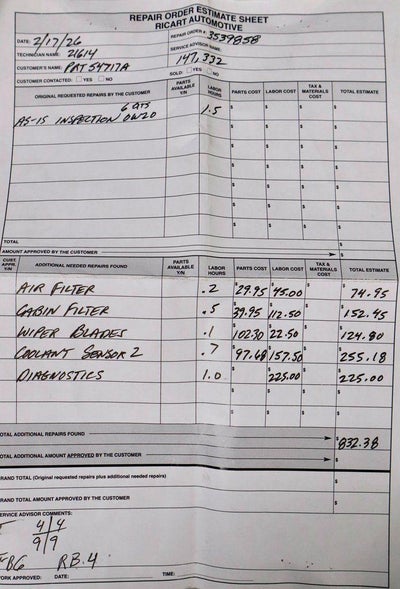 REPAIR ORDER ESTIMATE SHEET
RICART AUTOMOTIVE
DATE: 2/17/26 REPAIR ORDER # 3539858
TECHNICIAN NAME: 21614 SERVICE ADVISOR NAME:
CUSTOMER'S NAME: PAT54717A 147,332
CUSTOMER CONTACTED: YES NO SOLD: YES NO
ORIGINAL REQUESTED REPAIRS BY THE CUSTOMER PARTS AVAILABLE Y/N LABOR HOURS PARTS COST LABOR COST TAX & MATERIALS COST TOTAL ESTIMATE
6 QTS
AS-IS INSPECTION 0W20 1.5 $ $ $ $
TOTAL
AMOUNT APPROVED BY THE CUSTOMER $
CUST. APPR. Y/N ADDITIONAL NEEDED REPAIRS FOUND PARTS AVAILABLE Y/N LABOR HOURS PARTS COST LABOR COST TAX & MATERIALS COST TOTAL ESTIMATE
AIR FILTER .2 $29.95 $45.00 $ $74.95
CABIN FILTER .5 $39.95 $112.50 $ $152.45
WIPER BLADES .1 $102.30 $22.50 $ $124.80
COOLANT SENSOR 2 .7 $97.68 $157.50 $ $255.18
DIAGNOSTICS 1.0 $ $225.00 $ $225.00
TOTAL ADDITIONAL REPAIRS FOUND $832.38
TOTAL ADDITIONAL AMOUNT APPROVED BY THE CUSTOMER $
GRAND TOTAL (Original requested repairs plus additional needed repairs) $
GRAND TOTAL AMOUNT APPROVED BY THE CUSTOMER $
SERVICE ADVISOR COMMENTS:
4 4
9 9
RB.4
WORK APPROVED: DATE: TIME: